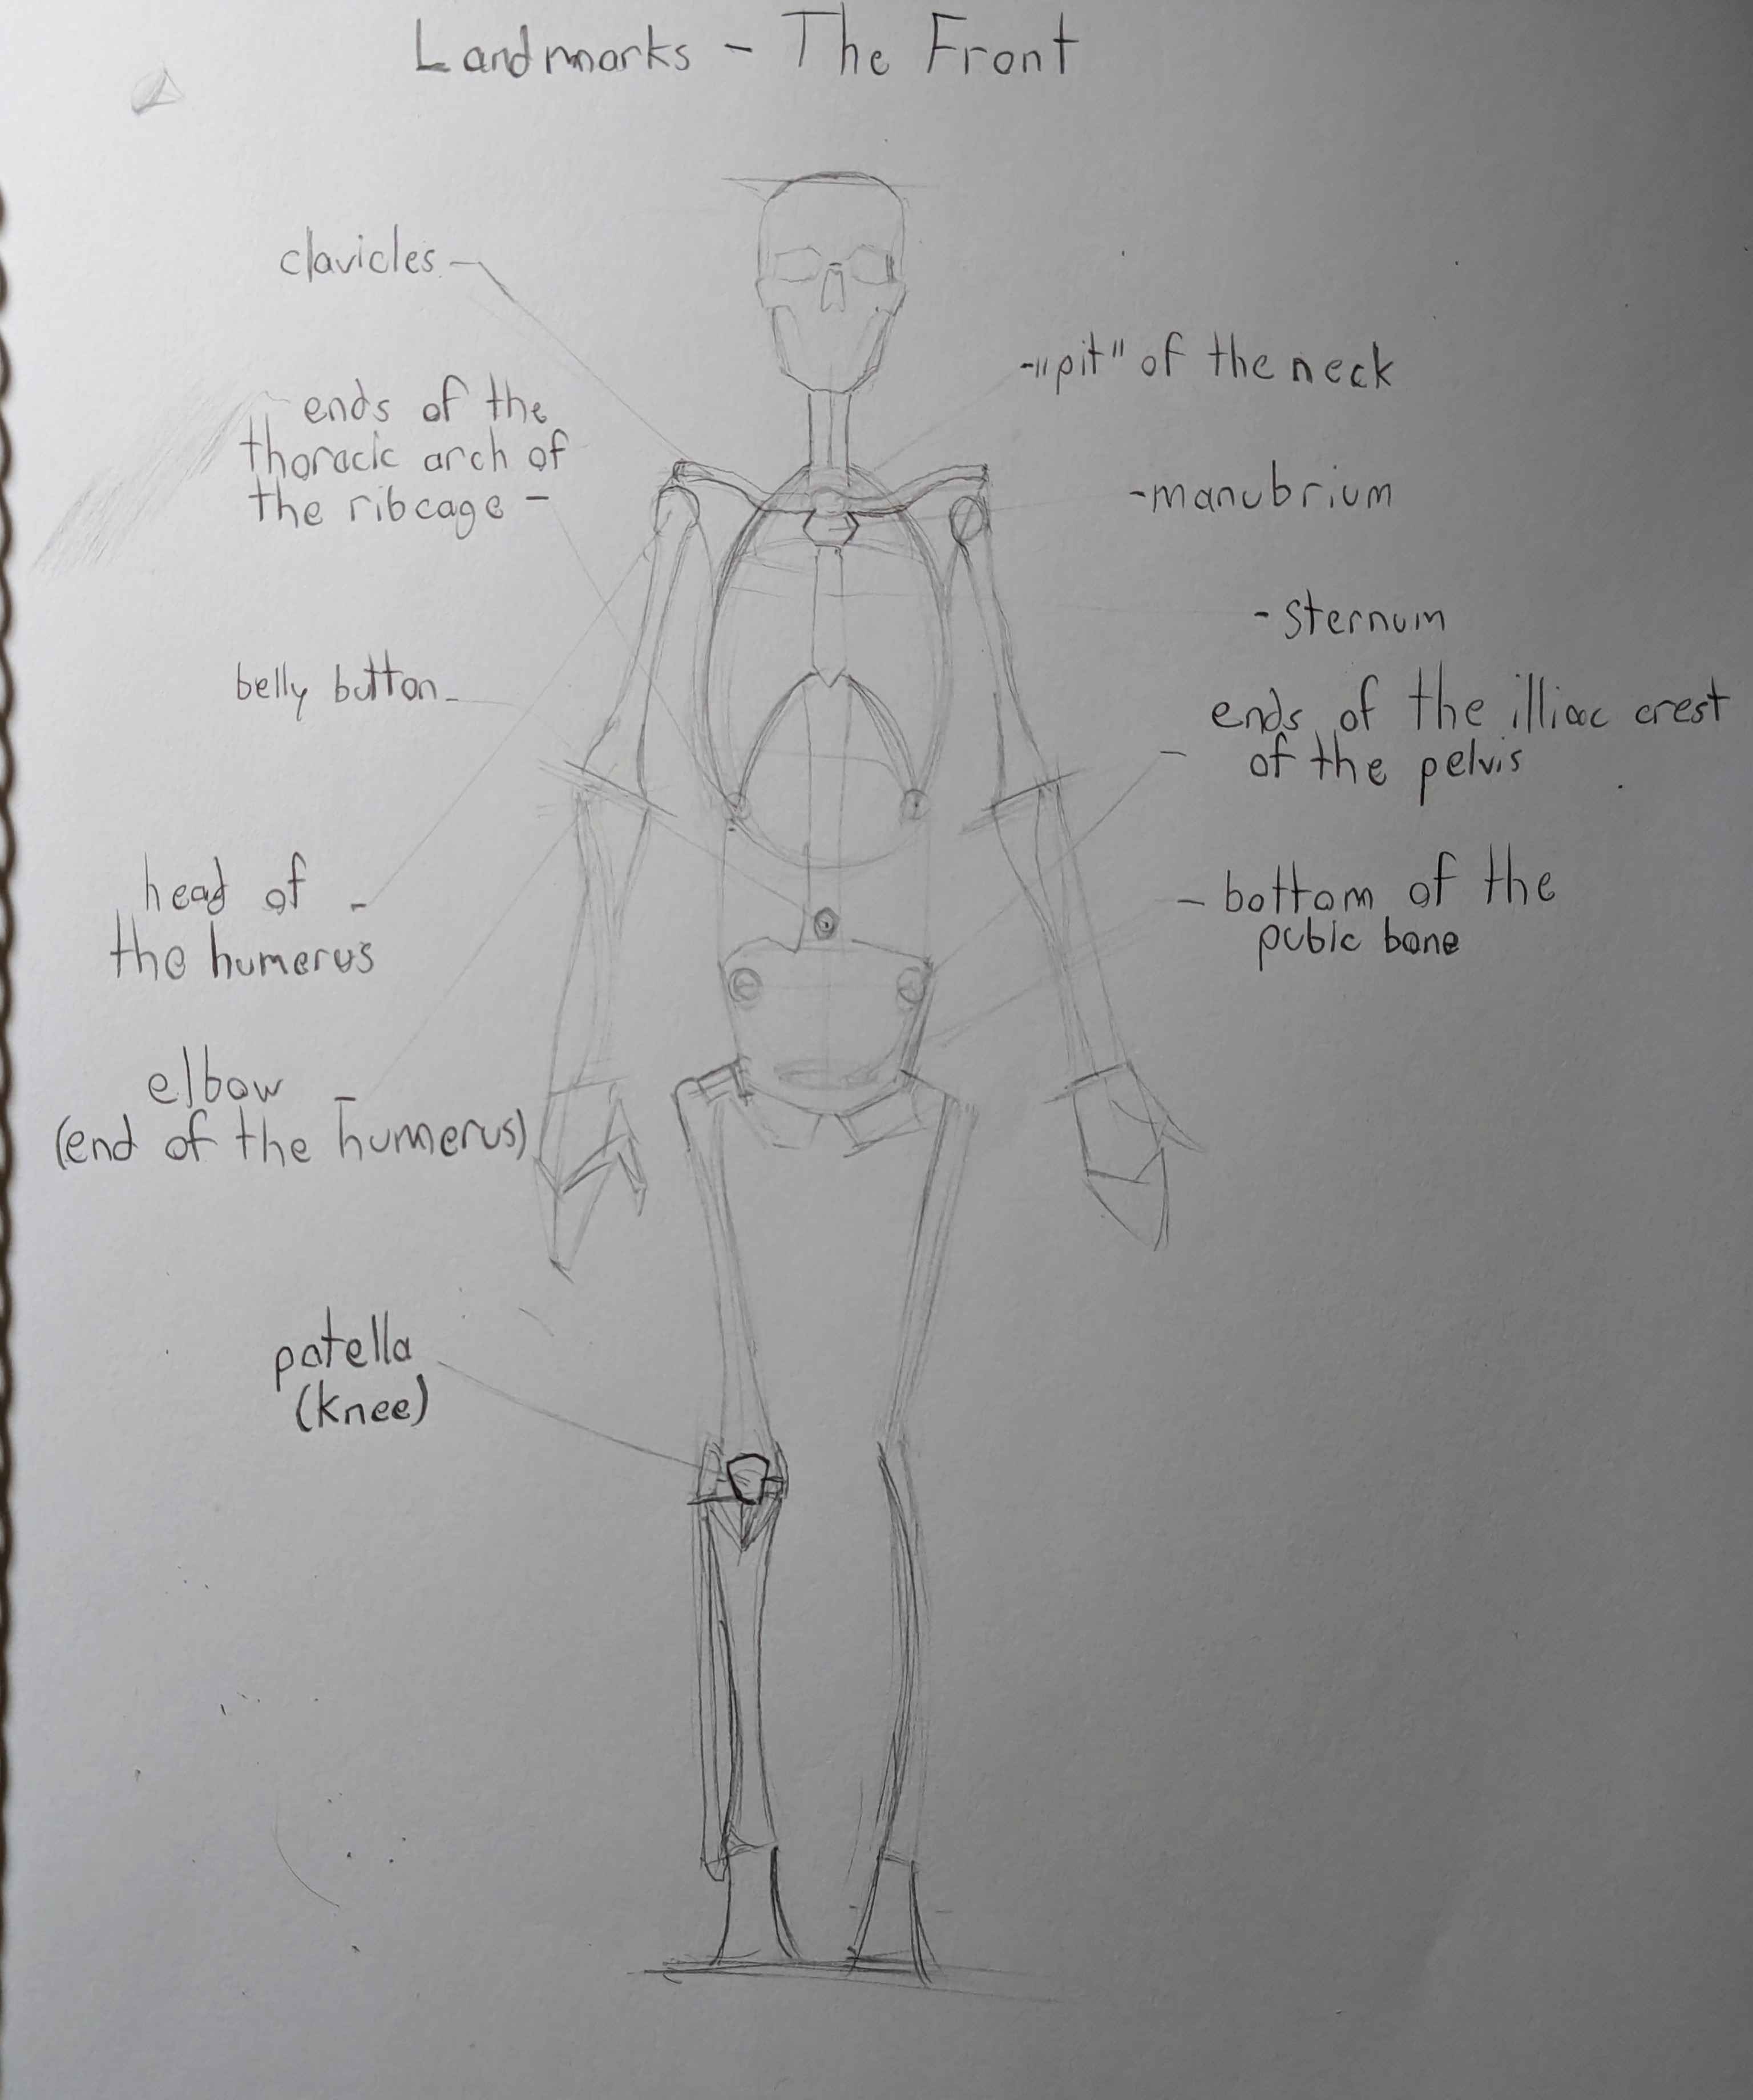 Landmarks - The Front
clavicles -
ends of the
thoracic arch of
the ribcage -
belly button -
head of -
the humerus
elbow -
(end of the humerus)
patella
(knee)
- "pit" of the neck
- manubrium
- sternum
ends of the illiac crest
- of the pelvis
- bottom of the
pubic bone